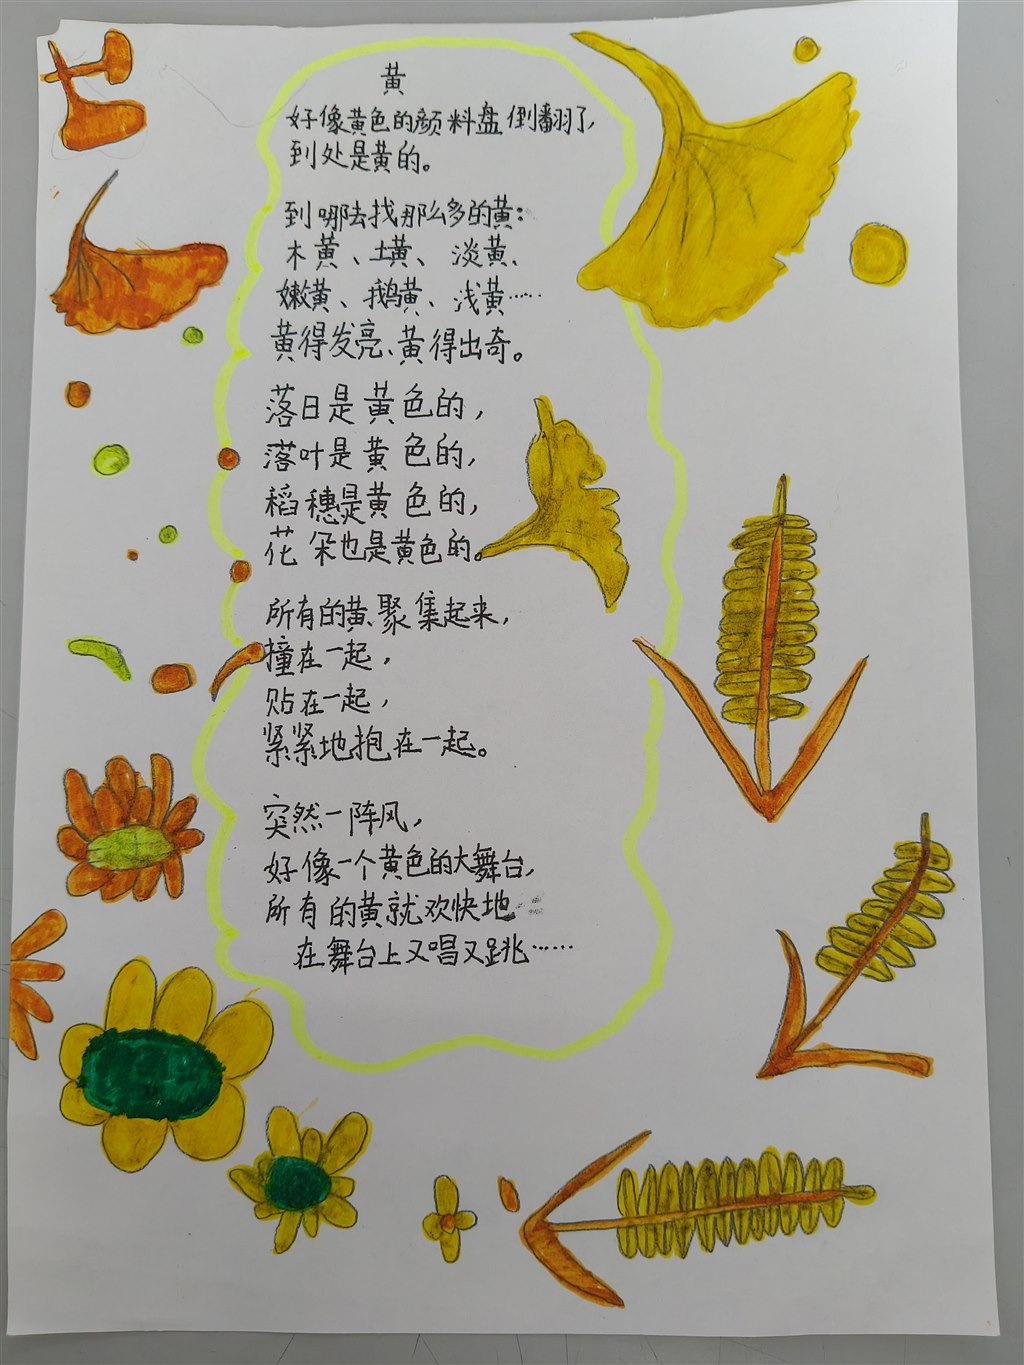 黄
好像黄色的颜料盘倒翻了,
到处是黄的。
到哪去找那么多的黄:
木黄、土黄、淡黄、
嫩黄、鹅黄、浅黄……
黄得发亮、黄得出奇。
落日是黄色的,
落叶是黄色的,
稻穗是黄色的,
花朵也是黄色的。
所有的黄聚集起来,
撞在一起,
贴在一起,
紧紧地抱在一起。
突然一阵风,
好像一个黄色的大舞台,
所有的黄就欢快地
在舞台上又唱又跳……